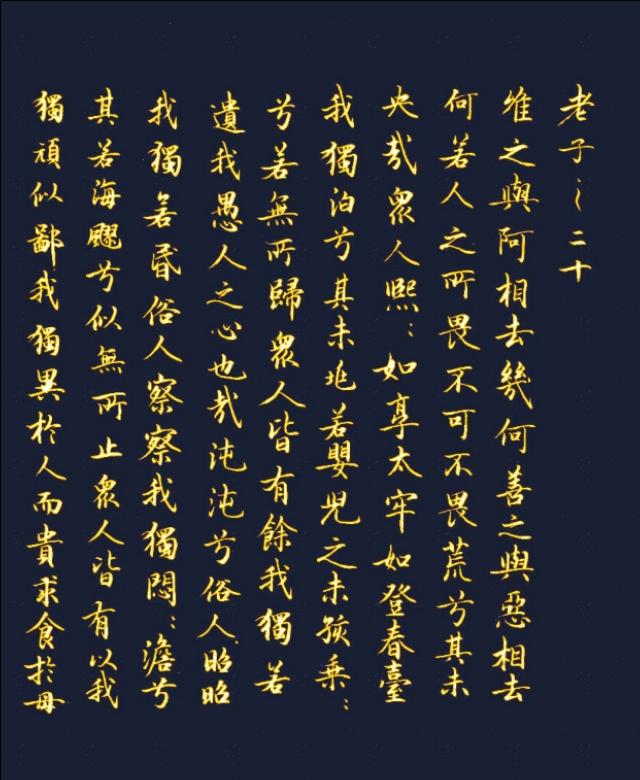 老子之二十
唯之與阿相去幾何善之與惡相去
何若人之所畏不可不畏荒兮其未
央哉眾人熙:如享太牢如登春臺
我獨泊兮其未兆若嬰兒之未孩乘:
兮若無所歸眾人皆有餘我獨若
遺我愚人之心也哉沌沌兮俗人昭昭
我獨若昏俗人察察我獨悶:澹兮
其若海飂兮似無所止眾人皆有以我
獨頑似鄙我獨異於人而貴求食於母